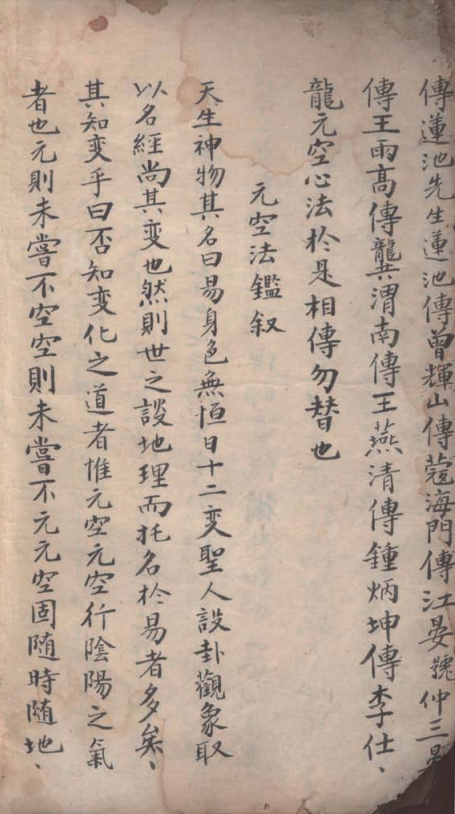 傳蓮池先生蓮池傳曾輝山傳蔻海門傳江晏魏仲三
傳王雨高傳龔渭南傳王燕清傳鍾炳坤傳李仕、
龍元空心法於是相傳勿替也
元空法鑑叙
天生神物其名曰易身色無恒日十二变聖人設卦觀象取
以名經尚其变也然則世之談地理而托名於易者多矣、
其知变乎曰否知变化之道者惟元空元空行陰陽之氣
者也元則未嘗不空空則未嘗不元元空固随時随地、